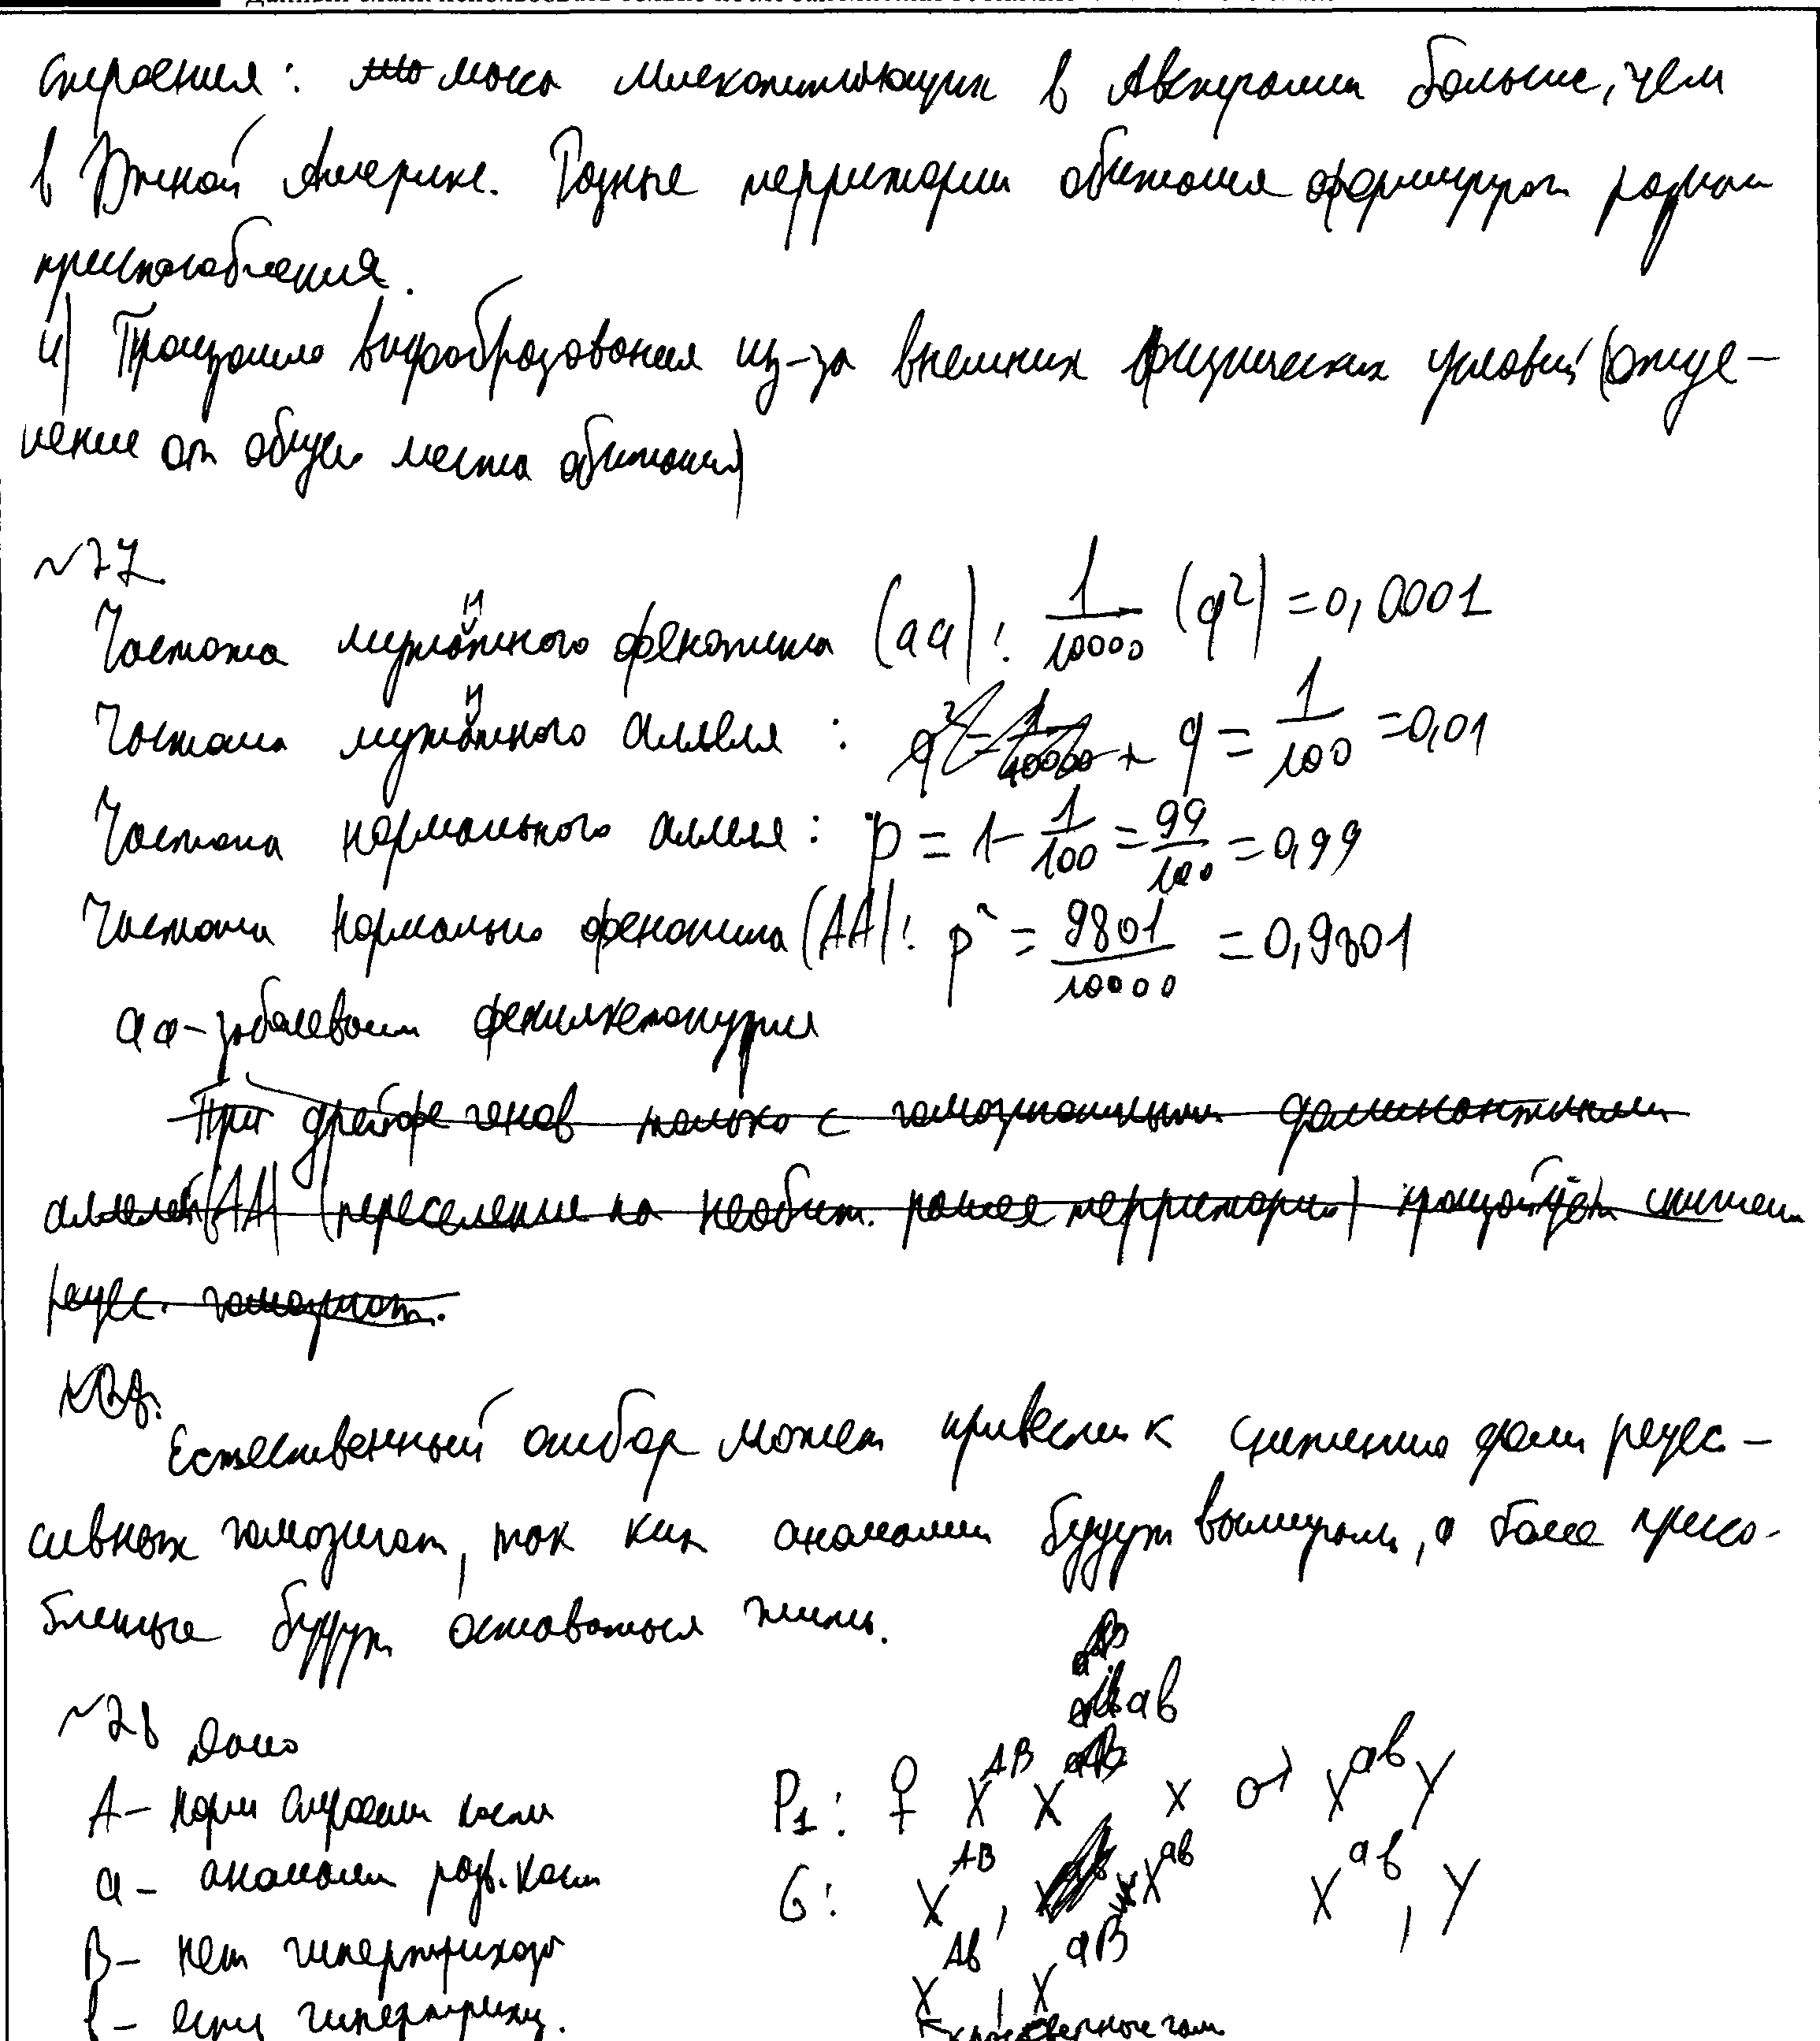 строения: масса млекопитающих в Австралии больше, чем
в Южной Америке. Разные территории обитания формируют разные
приспособления.
4) Произошло видообразования из-за внешних физических условий (отде-
ление от общего места обитания)
№27.
Частота мутантного фенотипа (aa): 1/10000 (q²) = 0,0001
Частота мутантного аллеля: q = 1/100 = 0,01
Частота нормального аллеля: p = 1 - 1/100 = 99/100 = 0,99
Частота нормально фенотипа (AA): p² = 9801/10000 = 0,9801
aa - заболевании фенилкетонурия
При дрейфе генов только с гомозиготными доминантными
аллелей (AA) (переселение на необит. ранее территорию) произойдёт снижен
рецес. гомозигот.
Естественный отбор может привести к снижению доли рецес-
сивных гомозигот, так как аномалии будут вымирать, а более присо-
бленные будут оставаться жить.
№28 Дано
A - норм строен кости
a - аномалии разв. кост
B - нет гипертрихоз
b - есть гипертрихоз.
P1: ♀ X^AB X^ab x ♂ X^ab Y
G: X^AB, X^ab X^ab, Y
X^Ab, X^aB